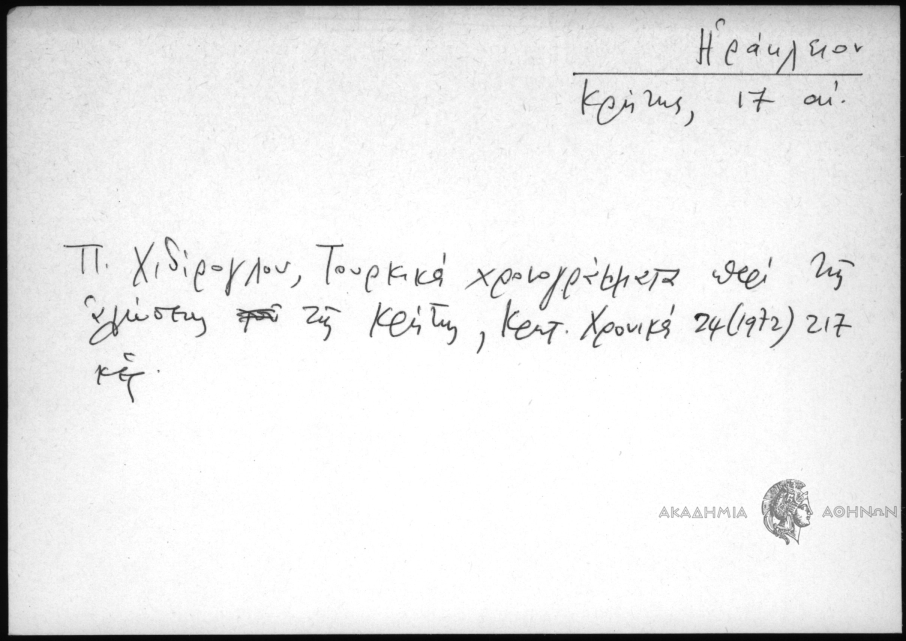 Ἡράκλειον
Κρήτης, 17 αἰ.
Π. Χιδίρογλου, Τουρκικά χρονογράμματα περί τῆς
ἁλώσεως τῆς Κρήτης, Κρητ. Χρονικά 24(1972) 217
κἑξ.
ΑΚΑΔΗΜΙΑ ΑΘΗΝΩΝ